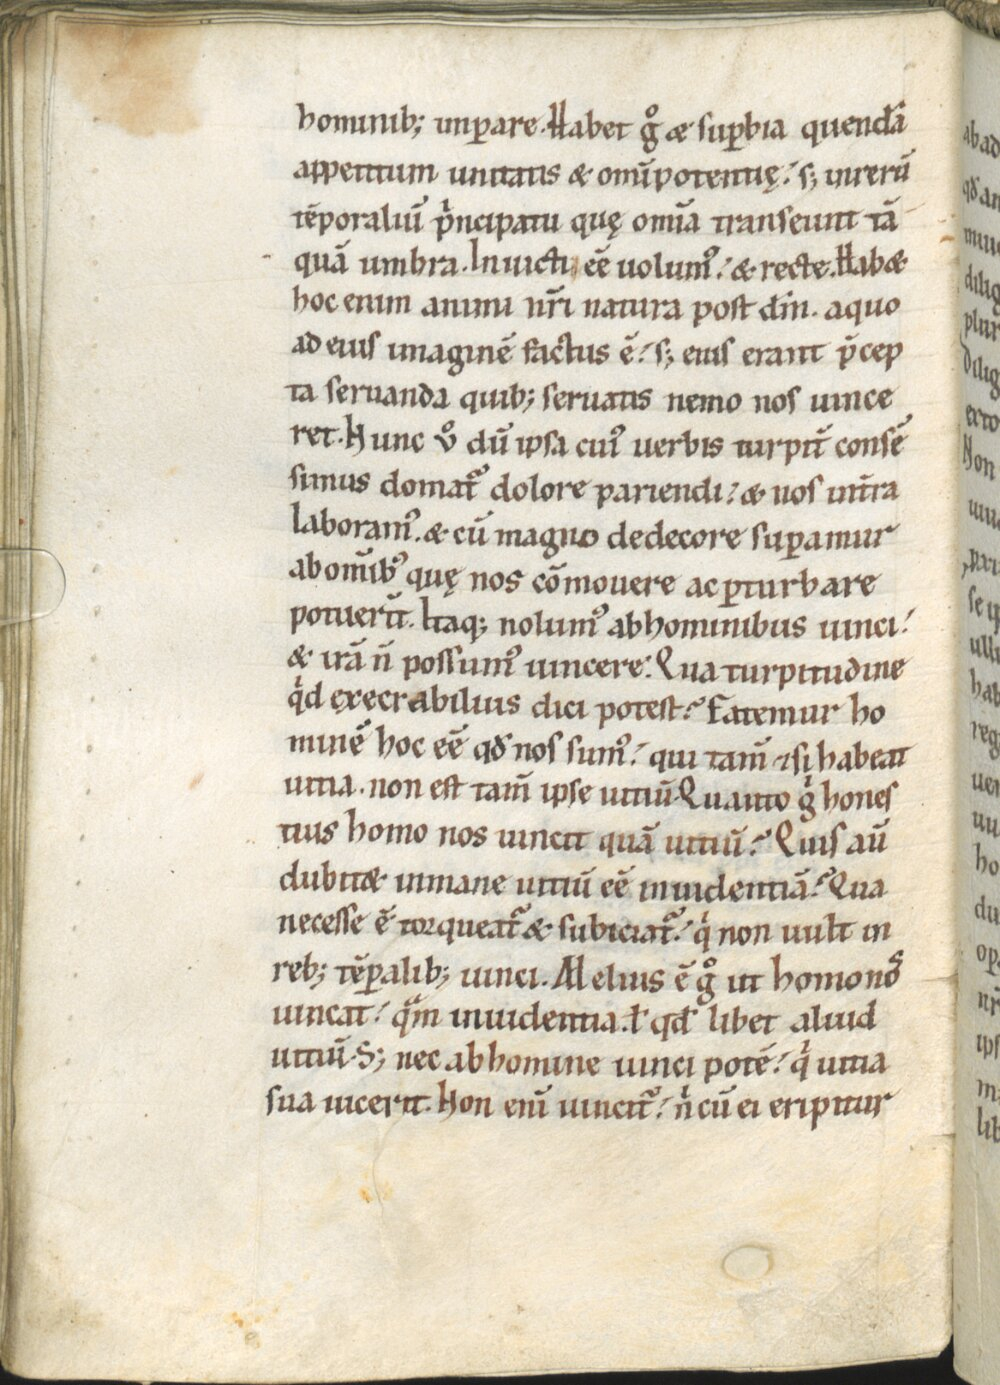 hominib; inꝑare. Habet gͦ & suꝑbia quendā
appetitum unitatis & omīpotentię; s; in rerū
tēporaliū pͥncipatu quę omīa transeunt tā
quā umbra. Inuicti eē uolumꝰ; & recte. Hab&
hoc enim animi nr̄i natura post dm̄. a quo
ad eius imaginē factus ē; s; eius erant p̄cep
ta seruanda quib; seruatis nemo nos uince
ret. Hunc v̊ dū ipsa cuiꝰ uerbis turpit̄ consē
simus domat᷑ dolore pariendi; & nos in tr̄a
laboramꝰ. & cū magno dedecore suꝑamur
ab om̄ibꝰ quę nos cōmouere ac ꝑturbare
potuer̄t. Itaq; nolumꝰ ab hominibus uinci;
& irā n̄ possumꝰ uincere. Qua turpitudine
qͥd exęcrabilius dici potest; Fatemur ho
minē hoc eē qđ nos sumꝰ; qui tam̄ & si habeat
uitia. non est tam̄ ipse uitiū. Quanto gͥ hones
tius homo nos uincit quā uitiū; Quis aū
dubit& inmane uitiū eē inuidentiā; Qua
necesse ē torqueat᷑ & subiciat᷑; qͥ non uult in
reb; tēꝑalib; uinci. Melius ē gͦ ut homo nos
uincat; qͣm inuidentia. ł qđ libet aliud
uitiū. S; nec ab homine uinci potē; qͥ uitia
sua uicerit. Non enī uincit᷑; nͥ cū ei eripitur